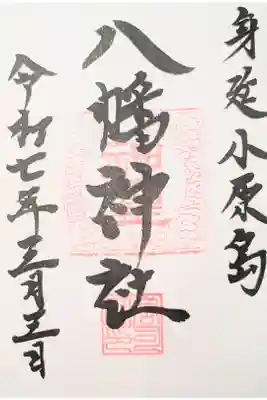 身延小原島
八幡神社
令和七年三月三日